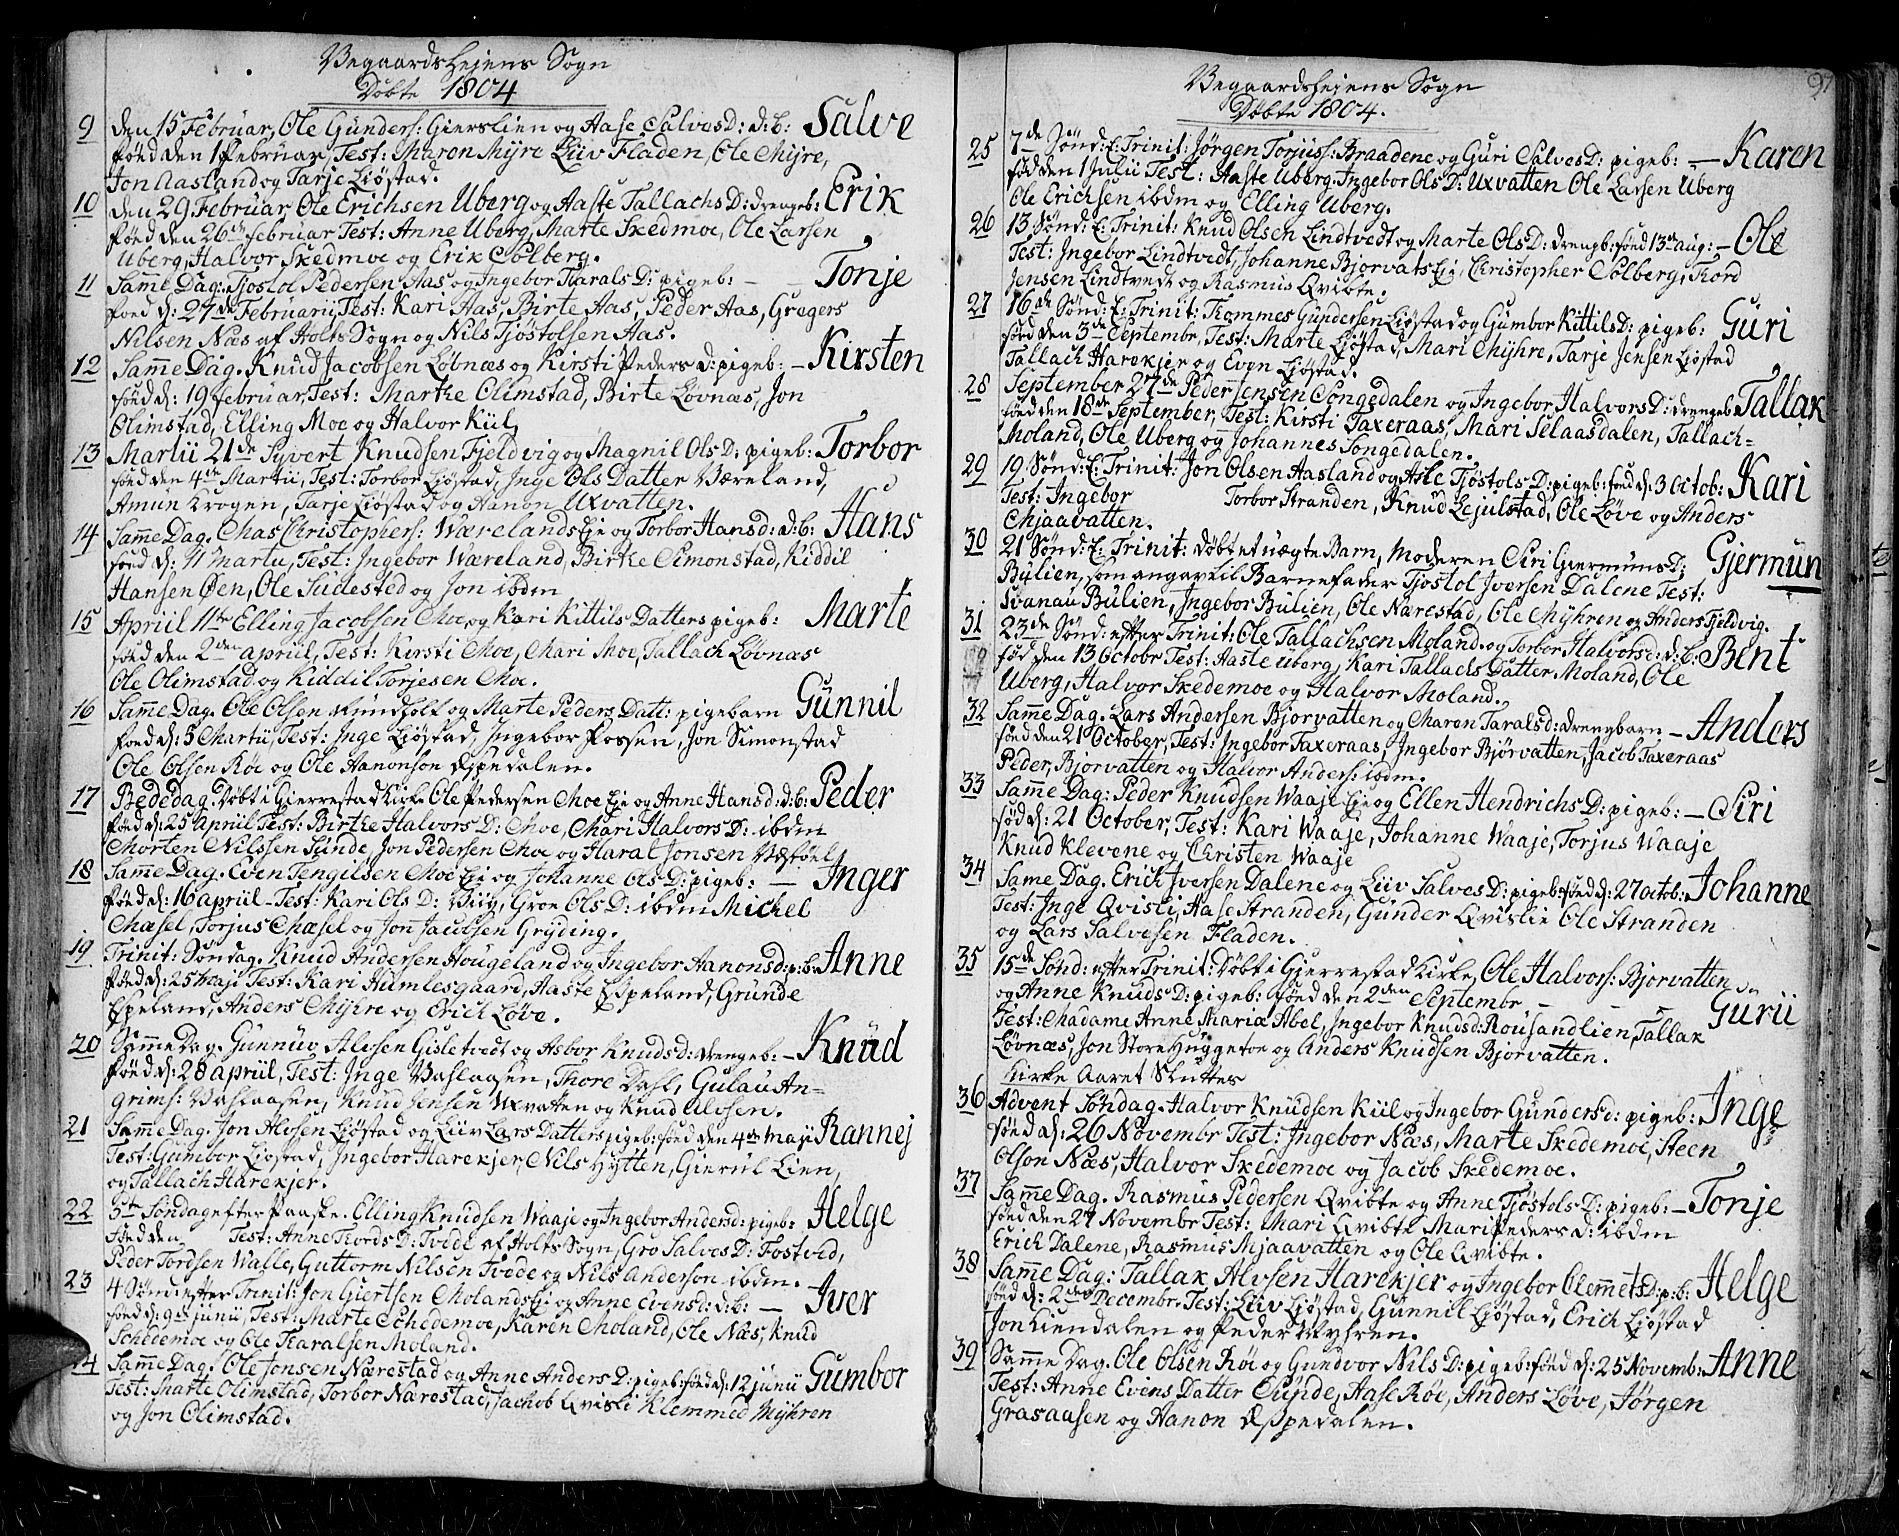 Vegaardsheiens Sogn
Døbte 1804
9 den 15 Februar, Ole Gunders: Gierslien og Aase SalvesD: d: b: Salve
føed den 1 Februar, Test: Maren Myre Liiv Fladen, Ole Myre,
Jon Aasland og Tarje Liøstad.
10 den 29 Februar Ole Erichsen Uberg og Aaste Tallachs D: drengeb: Erik
føed den 26de Februar Test: Anne Uberg, Marte Skedmoe, Ole Larsen
Uberg, Halvor Skedmoe og Erik Solberg.
11 Same Dag. Tjostol Pedersen Aas og Ingebor Tarals D: pigeb: – Tonje
føed d: 27de Februarii Test: Kari Aas, Birte Aas, Peder Aas, Gregers
Nilsen Næs af Holts Sogn og Nils Tjøstolsen Aas.
12 Same Dag. Knud Jacobsen Løvnæs og Kirsti Peders d: pigeb: – Kirsten
føed d: 19 februar, Test: Marthe Olimstad, Birte Løvnæs, Jon
Olimstad, Elling Moe og Halvor Kiil,
13 Martii 21de Syvert Knudsen Fjeldvig og Magnil Ols D: pigeb: Torbor
føed den 4de Martii, Test: Torbor Liøstad, Inge Ols Datter Væreland,
Amun Krogen, Tarje Liøstad og Hanon Uxvatten.
14 Same Dag. Chas Christophers: Wærelands Eje og Torbor Hans d: d: b: Hans
føed d: 11 Martii, Test: Ingebor Væreland, Birthe Simonstad, Kiddil
Hansen Øen, Ole Sudested og Jon ibdm
15 Apriil 11te Elling Jacobsen Moe, og Kari Kittils Datters pigeb: Marte
føed den 2den apriil, Test: Kirsti Moe, Mari Moe, Tallach Løvnæs
Ole Olimstad og Kiddil Torjesen Moe.
16 Same Dag. Ole Olsen Rundholt og Marte Peders Datt: pigebarn Gunnil
føed d: 5 Martii, Test: Inge Liøstad, Ingebor Fossen, Jon Simonstad
Ole Olsen Røe og Ole Aanonsøn Espedalen.
17 Bededag. Døbt i Gierrestad Kirke Ole Pedersen Moe Eje og Anne Hansd: d: b: Peder
føed d: 25 Apriil Test: Birthe Halvors D: Moe, Mari Halvors D: ibdm
Morten Nilssen Sunde, Jon Pedersen Moe og Haral Jonsen Væstøel
18 Same Dag. Even Tengilsen Moe Eje og Johanne Ols D: pigeb: – Inger
føed d: 16 apriil – Test: Kari Ols D: Viig, Groe Ols D: ibdm Michel
Mæsel, Torjus Mæsel og Jon Jacobsen Gryding.
19 Trinit: Søndag. Knud Andersen Hougeland og Ingebor Aanonsd: p: b: Anne
føed d: 25 maji Test: Kari Humlesgaard, Aaste Espeland, Grunde
Espeland, Anders Myhre og Erich Løve.
20 Same Dag. Gunnuv Alvsen Gisletvedt og Asbor Knudsd: drengeb: – Knud
føed d: 28 apriil, Test: Inge Vaslaasen, Thore Dahl, Gulau An=
grims: Vaslaasen, Knud Jensen Uxvatten og Knud Alvsen.
21 Same Dag: Jon Alvsen Liøstad og Liiv Lars Datters pigeb: føed den 4de maji Rannej
Test: Gumbor Liøstad, Ingebor Harekjer, Nils Hytten, Gierul Lien,
og Tallach Harekjer.
22 5te Søndag efter Paaske. Elling Knudsen Waaje og Ingebor Andersd: pigeb: Helge
føed den Test: Anne Tords D: Tvede af Holts Sogn, Gro Salves D: Fostved,
Peder Tordsen Walle, Guttorm Nilsen Tvede og Nils Anderson ibdm.
23 4 Sønd: efter Trinit: Jon Giertsen Molands Eje og Anne Evensd: d: b: – Iver
føed d: 9de junii, Test: Marte Schedemoe, Karen Moland, Ole Næs, Knud
Schedemoe og Ole Taralsen Moland.
14 Same Dag. Ole Jonsen Nærestad og Anne Anders D: pigeb: føed d: 12 junii Gumbor
Test: Marte Olimstad, Torbor Nærestad, Jachob Qvisli Klemmed Myhren
og Jon Olimstad.
Vegaardsheiens Sogn
Døbte 1804.
25 7de Sønd: E: Trinit: Jørgen Torjuss: Braadene og Guri Salves D: pigeb: – Karen
fød den 1 Julii Test: Aaste Uberg, Ingebor Ols D: Uxvatten Ole Larsen Uberg
Ole Erichsen ibdm og Elling Uberg.
26 13 Sønd: E: Trinit: Knud Olsen Lindtvedt og Marte Ols D: drengb: føed 13 aug: – Ole
Test: Ingebor Lindtvedt, Johanne Bjorvats Eje, Christopher Solberg, Tord
Jensen Lindtvedt og Rasmus Qvibte.
27 16de Sønd: E: Trinit: Tommes Gundersen Liøstad og Gumbor Kittils D: pigeb: Guri
føed den 3de Septembr, Test: Marte Liøstad, Mari Myhre, Tarje Jensen Liøstad
Tallach Harekjer og Even Liøstad.
28 September 27de Peder Jensen Songedalen og Ingebor Halvors D: drengeb Tallak
føed den 18de September, Test: Kirsti Taxeraas, Mari Selaasdalen, Tallach=
Moland, Ole Uberg og Johannes Songedalen.
29 19 Sønd: E: Trinit: Jon Olsen Aasland og Asle Tjøstols D: pigeb: føed d: 3 Octob: Kari
Test: Ingebor Torbor Stranden, Knud Lejulstad, Ole Løve og Anders
Mjaavatten.
30 21 Sønd: E: Trinit: døbt et uægte Barn, Moderen Siri Giermuns D: Gjermun
Bylien, som angav til Barnefader Tjostol Iversen Dalene Test:
Svanau Bulien, Ingebor Bulien, Ole Nærestad, Ole Myhren og Anders Fjeldvig.
31 23de Sønd: efter Trinit: Ole Tallachsen Moland og Torbor Halvorsd: d: b: Bent
fød den 13 Octobr Test: Aaste Uberg, Kari Tallachs Datter Moland, Ole
Uberg, Halvor Skedemoe og Halvor Moland.
32 Same Dag. Lars Andersen Bjorvatten og Maren Taralsd: drengbarn – Anders
føed den 21 October, Test: Ingebor Taxeraas, Ingebor Bjørvatten, Jacob Taxeraas
Peder, Bjorvatten og Halvor Anders: ibdm.
33 Same Dag: Peder Knudsen Waaje Eje og Ellen Hendrichs D: pigeb: – Siri
fød d: 21 October, Test: Kari Waaje, Johanne Waaje, Torjus Waaje
Knud Klevene og Christen Waaje
34 Same Dag. Erich Iversen Dalene og Liiv Salves D: pigeb: føed d: 27 octb: Johanne
Test: Inge Qvisli, Aase Stranden, Gunder Qvislie Ole Stranden
og Lars Salvesen Fladen.
35 15de Sønd: efter Trinit: Døbt i Gjerrestad Kirke, Ole Halvors: Bjorvatten
og Anne Knuds D: pigeb: føed den 2den Septembr – Gurii
Test: Madame Anne Maria Abel, Ingebor Knudsd: Rousandlien, Tallak
Løvnæs, Jon Store Huggetoe og Anders Knudsen Bjorvatten.
Kirke Aaret Sluttes
36 Advent Søndag. Halvor Knudsen Kiil og Ingebor Gundersd: pigeb: Inge
føed d: 26 Novembr Test: Ingebor Næs, Marte Skedemoe, Steen
Olson Næs, Halvor Skedemoe og Jacob Skedemoe.
37 Same Dag. Rasmus Pedersen Qvibte og Anne Tjøstols D: pigeb: – Tonje
føed den 27 Novembr Test: Mari Qvibte Mari Peders D: ibdm
Erich Dalene, Rasmus Mjaavatten og Ole Qvibte.
38 Same Dag: Tallak Alvsen Harekjer og Ingebor Clemmets D: p: b: Helge
føed d: 2den Decembr. Test: Liiv Liøstad, Gunnil Liøstad, Erich Liøstad
Jon Liendalen og Peder Myhren.
39 Same Dag. Ole Olsen Røe og Gundvor Nils D: pigeb: føed d: 25 Novemb: Anne
Test: Anne Evens Datter Sunde, Aase Røe, Anders Løve, Jørgen
Grasaasen og Aanon Espedalen.